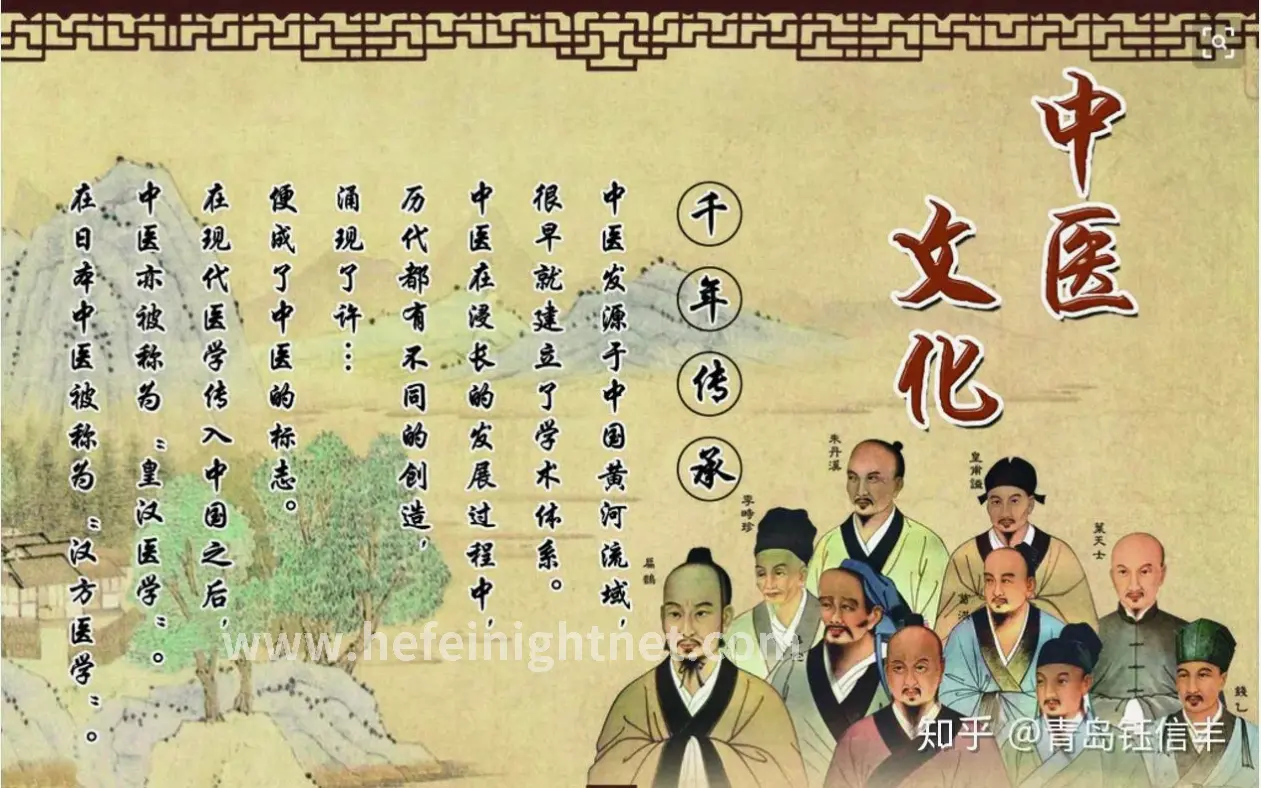 中医
文化
千年传承
中医发源于中国黄河流域，
很早就建立了学术体系。
中医在浸长的发展过程中，
历代都有不同的创造，
涌现了许…
便成了中医的标志。
在现代医学传入中国之后，
中医亦被称为“皇汉医学”。
在日本中医被称为“汉方医学”。
皇甫謐
朱丹溪
李時珍
葉天士
扁鵲
葛洪
錢乙
www.hefeinightnet.com
知乎 @青岛钰信丰